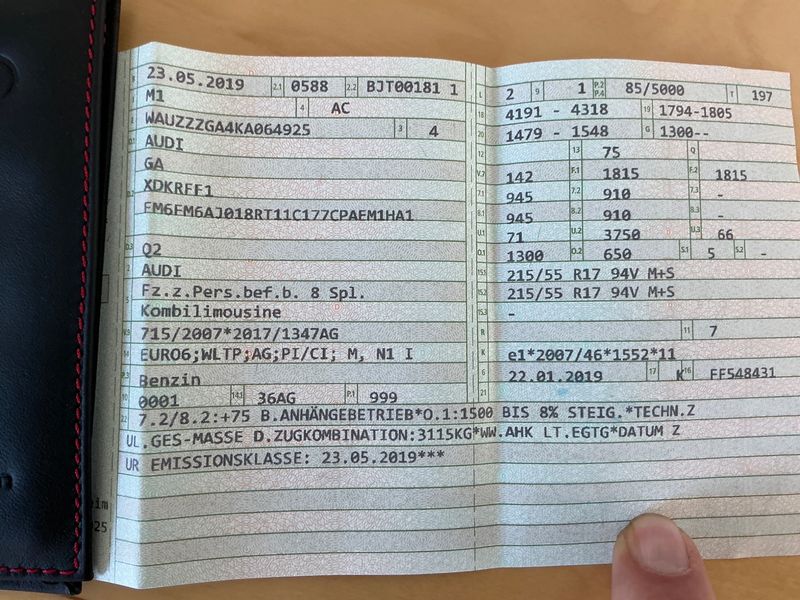 23.05.2019 2.1 0588 2.2 BJT00181 1
M1 4 AC
WAUZZZGA4KA064925 3 4
AUDI
GA
XDKRFF1
FM6FM6AJ018RT11C177CPAEM1HA1
Q2
AUDI
Fz.z.Pers.bef.b. 8 Spl.
Kombilimousine
715/2007*2017/1347AG
EURO6;WLTP;AG;PI/CI; M, N1 I
Benzin
0001 14.1 36AG P.1 999
L 2 9 1 P.2 P.4 85/5000 T 197
18 4191 - 4318 19 1794-1805
20 1479 - 1548 G 1300--
12 13 75 Q
V.7 142 F.1 1815 F.2 1815
7.1 945 7.2 910 7.3 -
8.1 945 8.2 910 8.3 -
U.1 71 U.2 3750 U.3 66
O.1 1300 O.2 650 S.1 5 S.2 -
15.1 215/55 R17 94V M+S
15.2 215/55 R17 94V M+S
15.3 -
R 11 7
K e1*2007/46*1552*11
6 22.01.2019 17 K 16 FF548431
21
22 7.2/8.2:+75 B.ANHÄNGEBETRIEB*O.1:1500 BIS 8% STEIG.*TECHN.Z
UL.GES-MASSE D.ZUGKOMBINATION:3115KG*WW.AHK LT.EGTG*DATUM Z
UR EMISSIONSKLASSE: 23.05.2019***